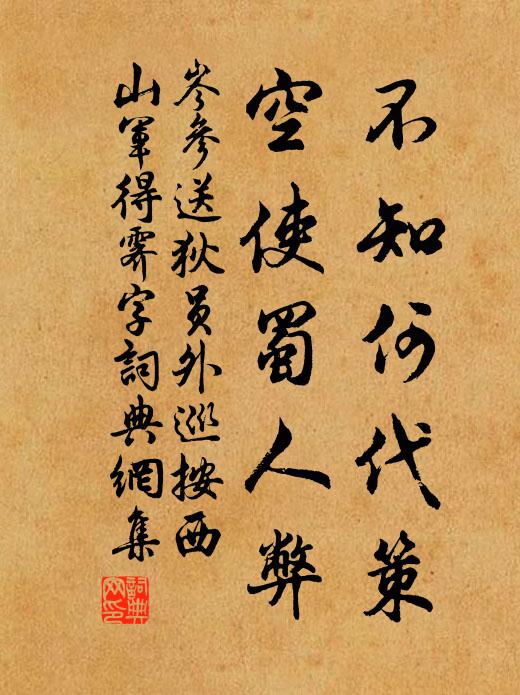 不知何代策
空使蜀人弊
岑參送狄員外巡按西
山軍得霽字詞典網集
詞典网印